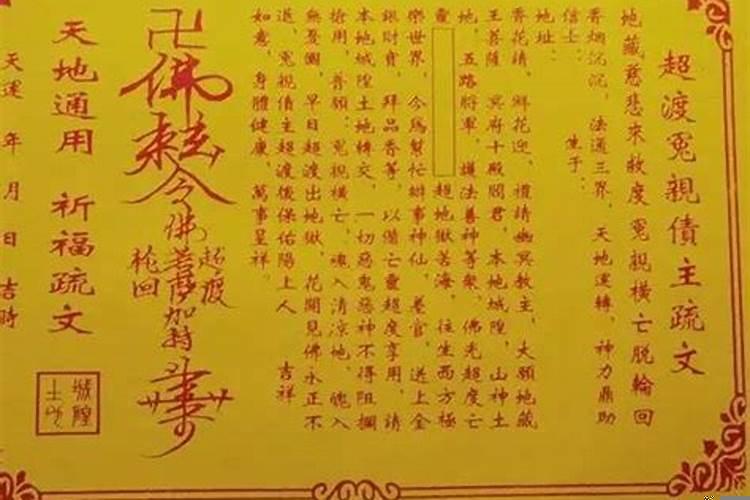 超渡冤親債主疏文
地藏慈悲來救度冤親橫亡脫輪回
香烟沉沉,法通三界,天地運轉,神力鼎助
信士: 生于:
地址:
香花請,鮮花迎,禮請幽冥教主,大願地藏
王菩薩 冥府十殿閻君,本地城隍,山神土
地,五路將軍,護法善神等衆,佛光超度亡
靈 超地獄苦海,往生西方極
樂世界,今爲幫忙辦事神仙,差官,送上金
銀財寶,拜品香等,以備亡靈超度享用,請
本地城隍土地轉交,一切惡鬼惡神不得阻攔
搶用,普願:冤親橫亡,魂入清凉地,魄入
無憂國,早日超渡出地獄,花開見佛永正不
退,冤親債主超渡後保佑陽上人 吉祥
如意,身體健康,萬事呈祥。
卍
佛
敕
令
佛菩薩加持
超渡
輪回
天地通用 祈福疏文
城隍
土地
天運 年 月 日 吉時